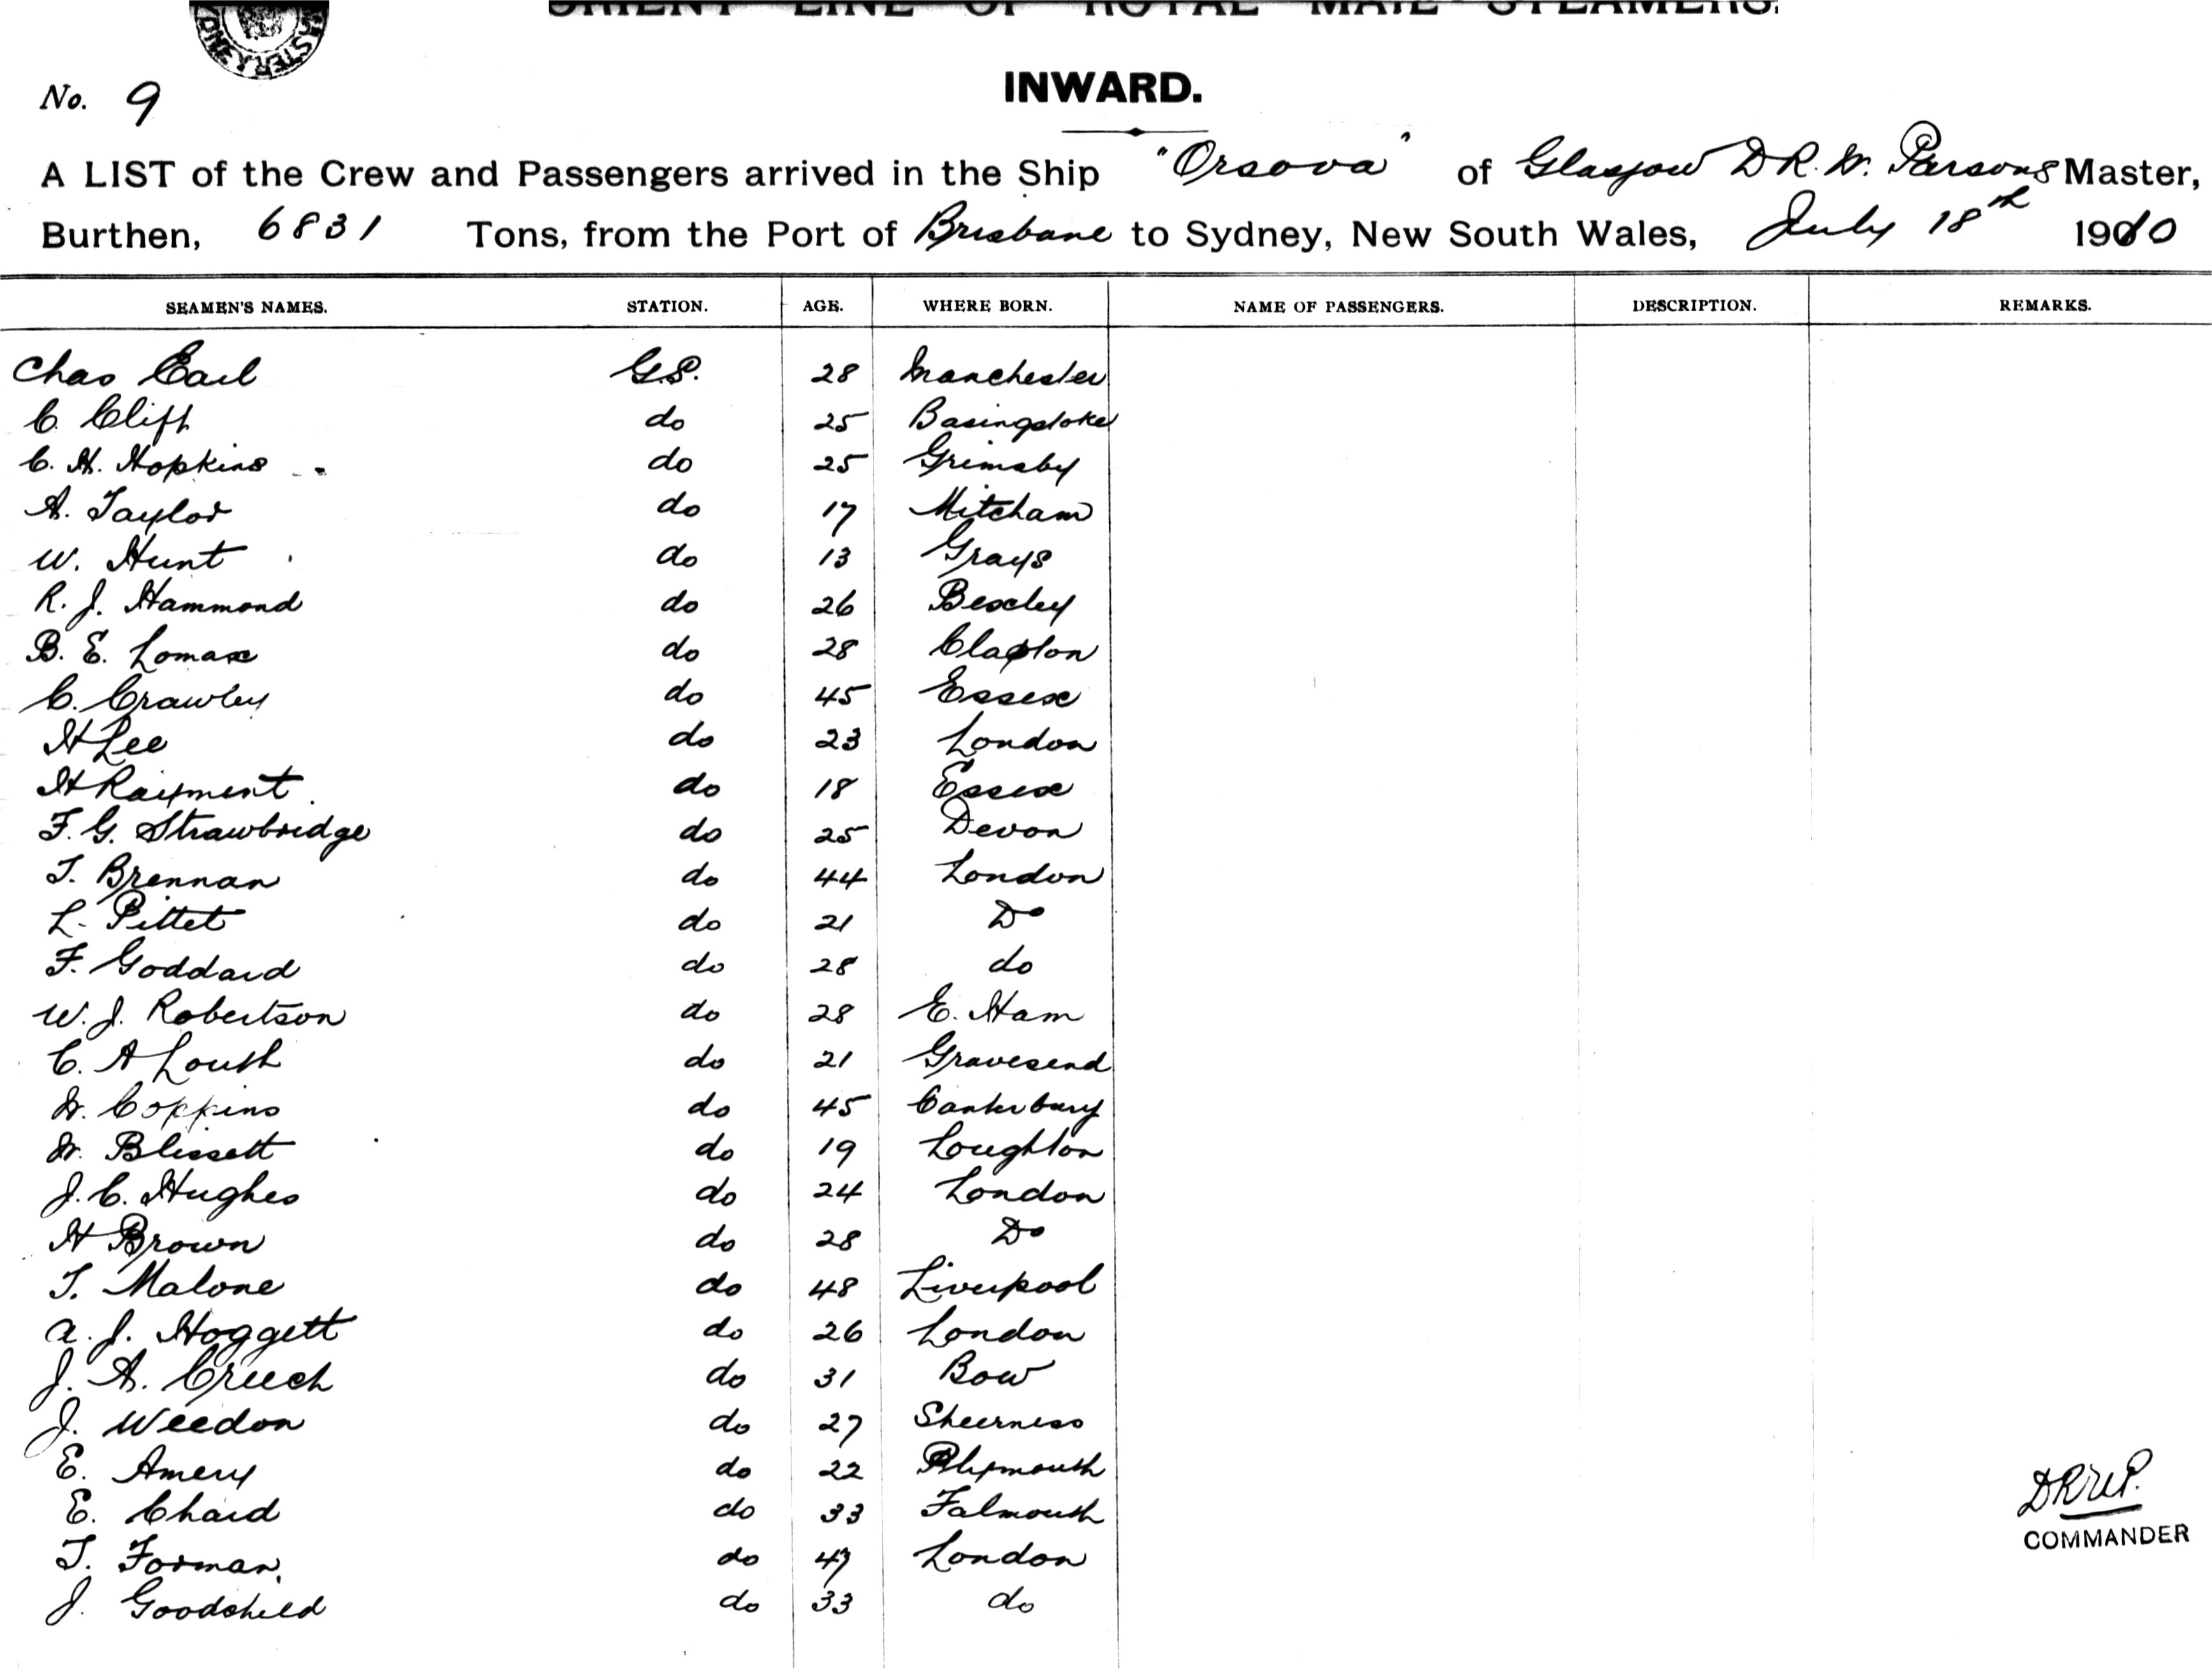 ORIENT LINE OF ROYAL MAIL STEAMERS.
No. 9
INWARD.
A LIST of the Crew and Passengers arrived in the Ship "Orsova" of Glasgow D R. W. Parsons Master,
Burthen, 6831 Tons, from the Port of Brisbane to Sydney, New South Wales, July 18th 1910
SEAMEN'S NAMES. STATION. AGE. WHERE BORN. NAME OF PASSENGERS. DESCRIPTION. REMARKS.
Chas Earl G.S. 28 Manchester
C. Clift do 25 Basingstoke
C. H. Hopkins do 25 Grimsby
A. Taylor do 17 Mitcham
W. Hunt do 13 Grays
R. J. Hammond do 26 Bexley
B. E. Lomax do 28 Clapton
C. Crawley do 45 Essex
H Lee do 23 London
H Rayment do 18 Essex
F. G. Strawbridge do 25 Devon
T. Brennan do 44 London
L. Pittet do 21 Do
F. Goddard do 28 do
W. J. Robertson do 28 E. Ham
C. A Louth do 21 Gravesend
W. Coppins do 45 Canterbury
W. Blissett do 19 Loughton
J. C. Hughes do 24 London
H Brown do 28 Do
T. Malone do 48 Liverpool
A. J. Hoggett do 26 London
J. A. Creech do 31 Bow
J. Weedon do 27 Sheerness
E. Amery do 22 Plymouth
E. Chard do 33 Falmouth
T. Forman. do 47 London
J. Goodchild do 33 do
D R W P.
COMMANDER